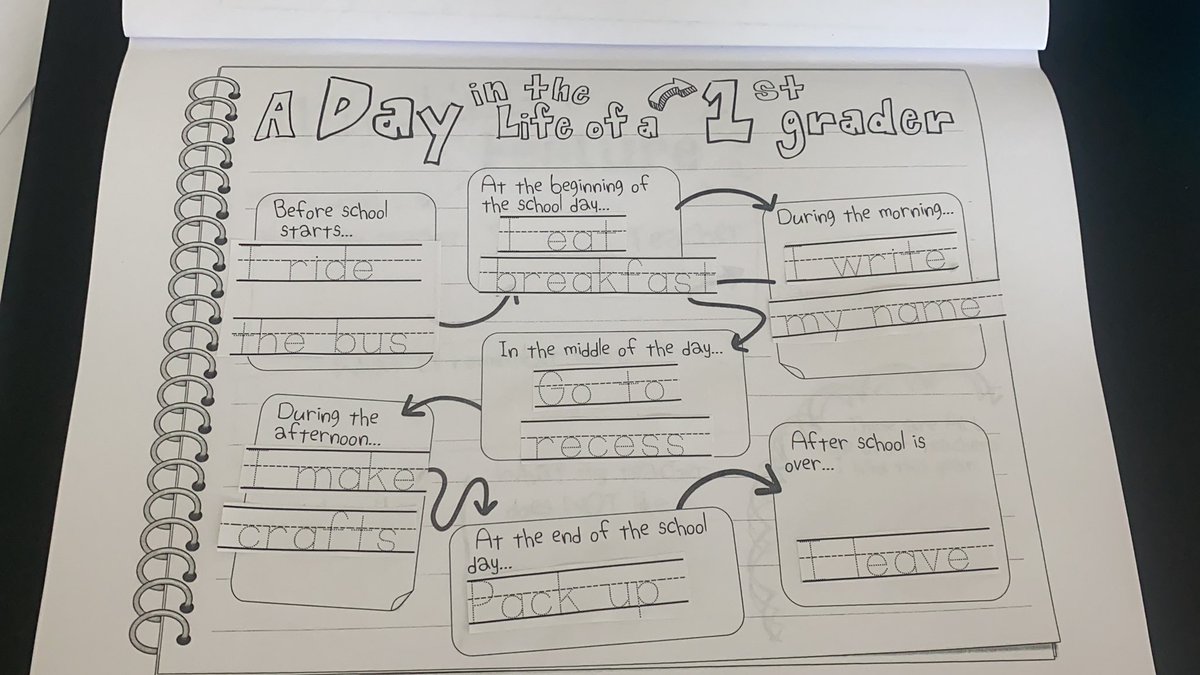 A Day in the Life of a 1st grader
Before school
starts...
I ride
the bus
At the beginning of
the school day...
I eat
breakfast
During the morning...
I write
my name
In the middle of the day...
Go to
recess
During the
afternoon...
I make
crafts
At the end of the school
day...
Pack up
After school is
over...
I leave